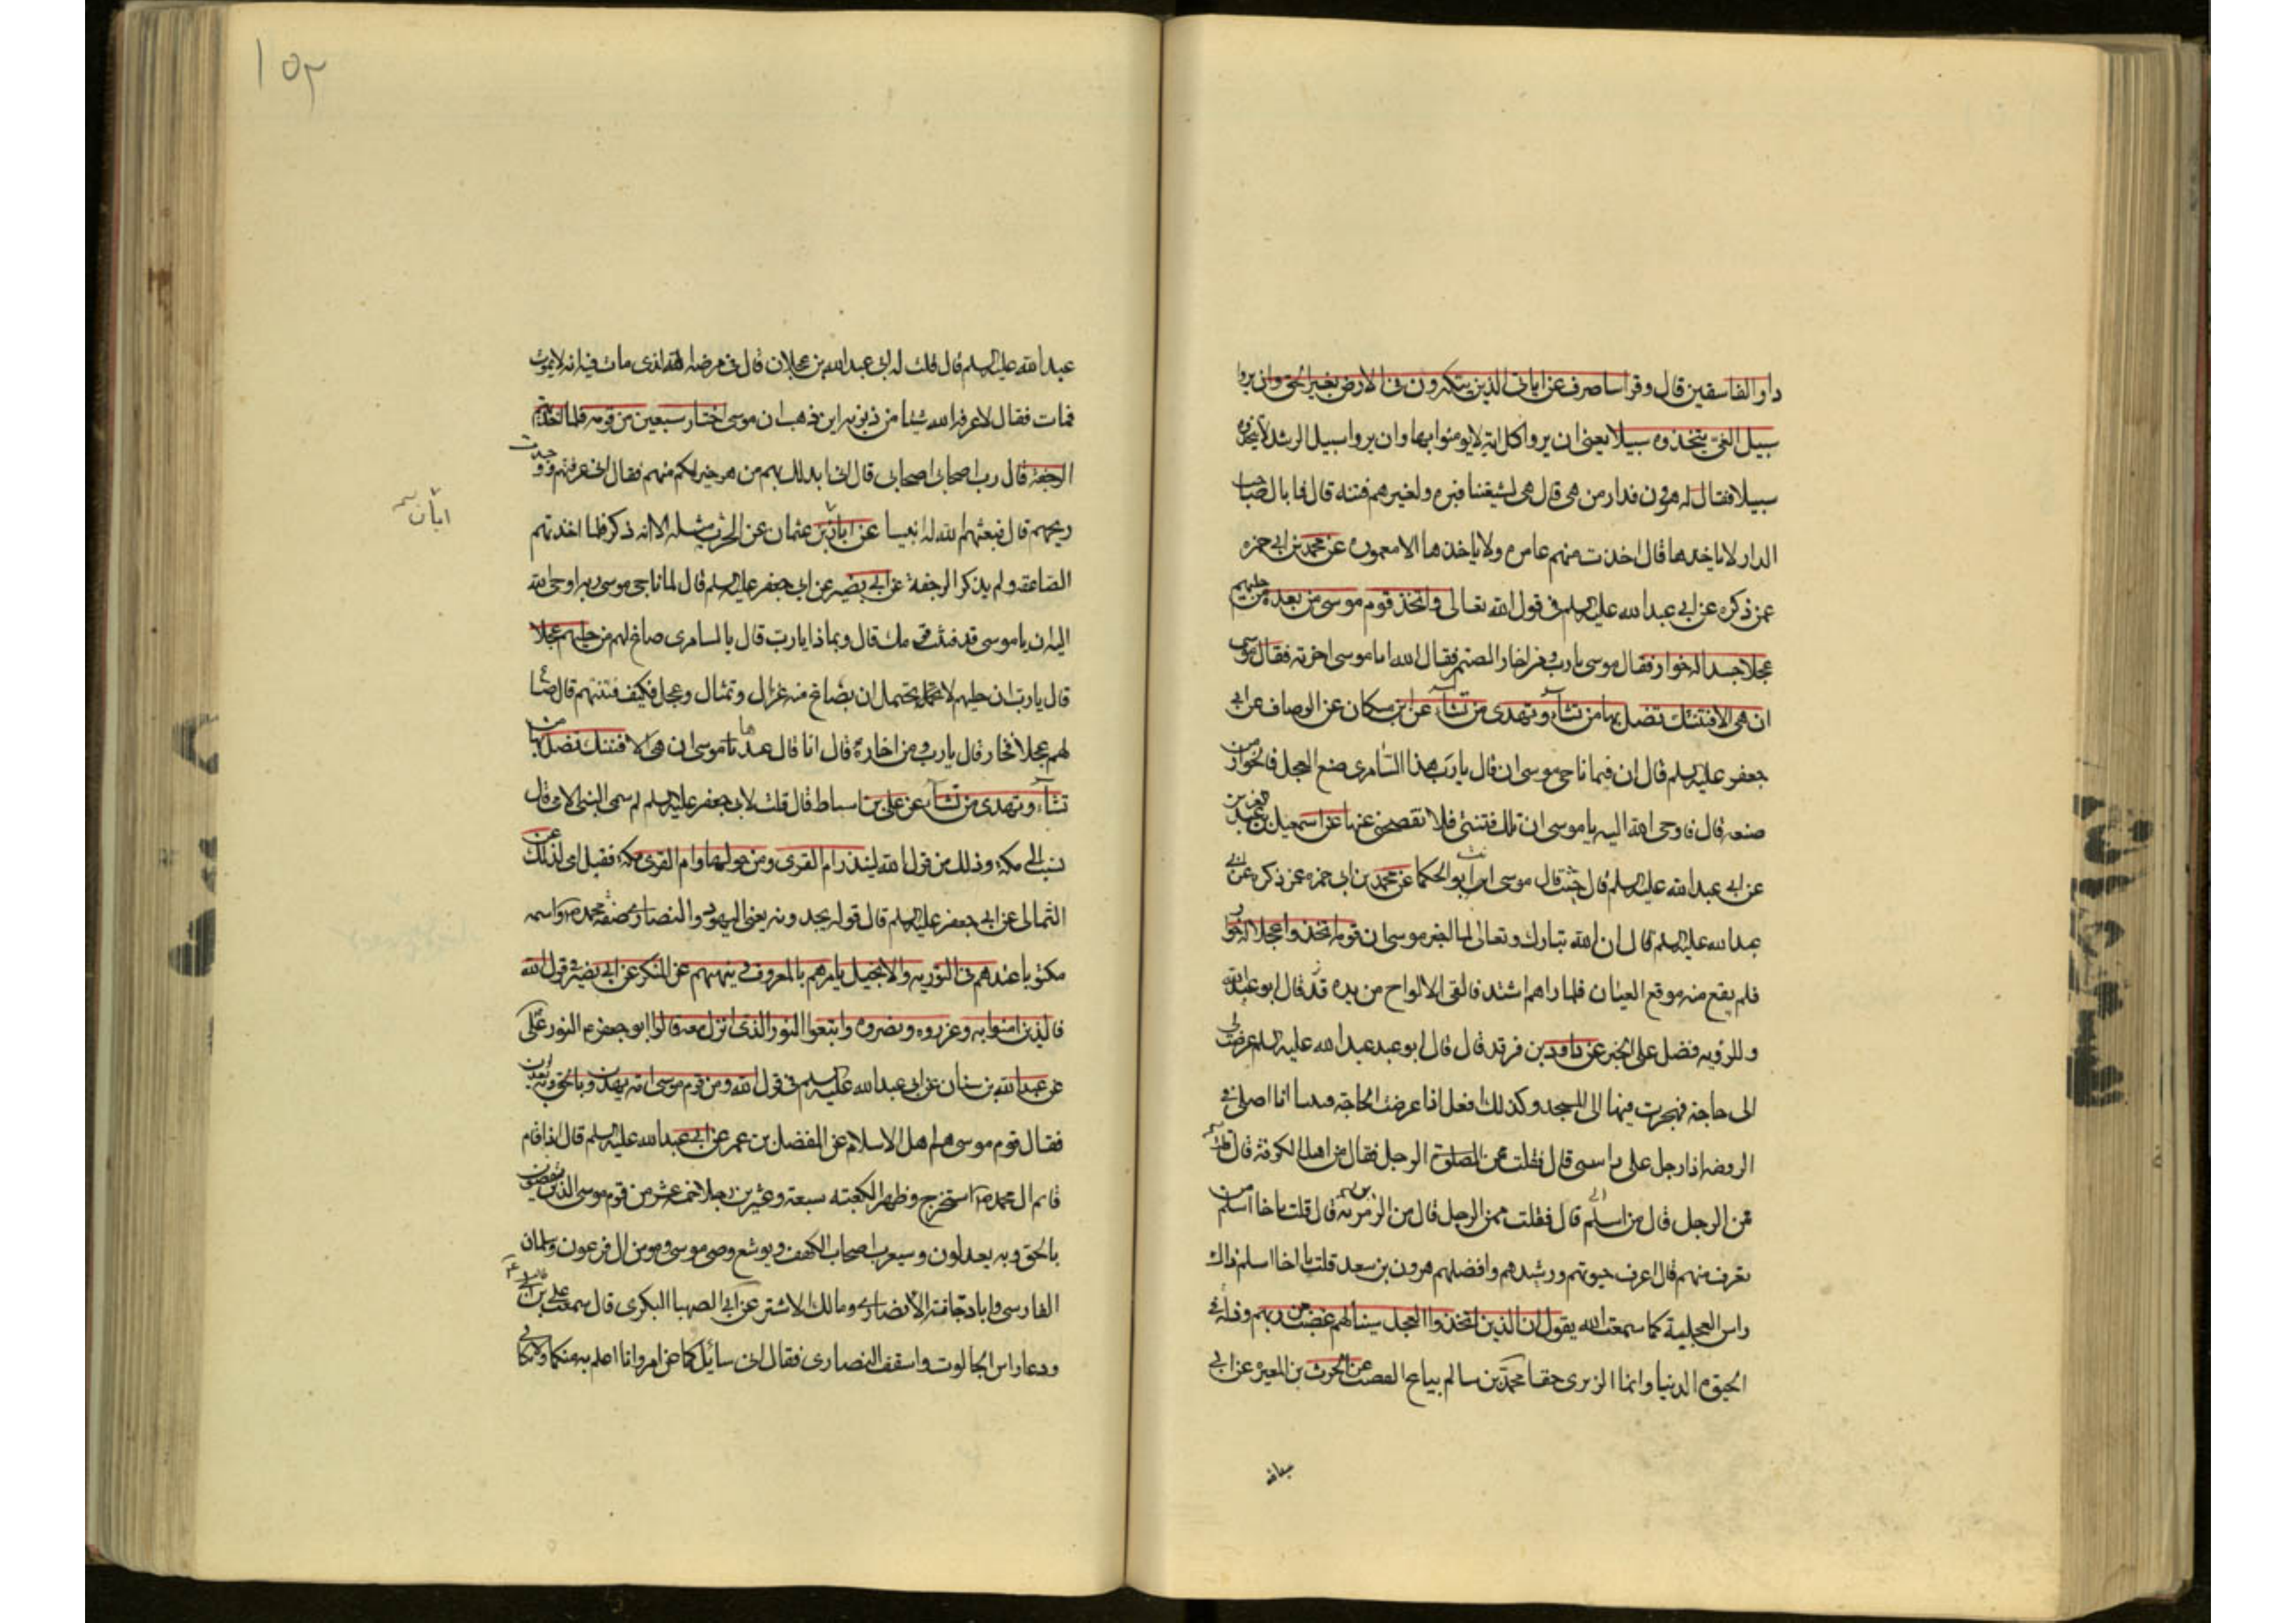 دار الفاسقين قال وقرا ساصرف عن اياتى الذين يتكبرون فى الارض بغير الحق وان يروا
سبيل الغى يتخذوه سبيلا يعنى ان يروا كل اية لا يومنوا بها وان يروا سبيل الرشد لا يتخذوه
سبيلا فقال له هرون فدار من هى قال هى لشيعتنا فتره ولغيرهم فتنه قال فما بال صاحب
الدار لا ياخدها قال اخدت منهم عامره ولا ياخدها الا معموره عن محمد بن ابى حمزه
عمن ذكره عن ابى عبدالله عليه السلم فى قول الله تعالى واتخذ قوم موسى من بعده من حليهم
عجلا جسدا له خوار فقال موسى يا رب ومن اخار الصنم فقال الله انا موسى اخرته فقال موسى
ان هى الا فتنتك تضل بها من تشآء وتهدى من تشآء عن ابن مسكان عن الوصاف عن ابى
جعفر عليه السلم قال ان فيما ناجى موسى ان قال يا رب هذا السامرى صنع العجل فالخوار من
صنعه قال فاوحى الله اليه يا موسى ان تلك فتنتى فلا تفصحنى عنها عن اسمعيل بن عبد العزيز
عن ابى عبدالله عليه السلم قال حيث قال موسى انت ابو الحكما عن محمد بن ابى حمزه عمن ذكره عن ابى
عبدالله عليه السلم قال ان الله تبارك وتعالى لما اخبر موسى ان قومه اتخذوا عجلا له خوار
فلم يقع منه موقع العيان فلما راهم اشتد فالقى الالواح من يده قال ابو عبدالله
وللرؤيه فضل على الخبر عن داود بن فرقد قال قال ابو عبد عبدالله عليه السلم عرضت لى
الى حاجة فهجرت فيها الى المسجد وكذلك افعل اذا عرضت الحاجة انا اصلى فى
الروضه اذا رجل على راسى قال فقلت الرجل فقال من اهل الكوفة قال قلت
ممن الرجل قال من اسلم قال فقلت ممن الرجل قال من الزيدية قال قلت يا اخا اسلم من
تعرف منهم قال اعرف خيرهم ورشيدهم وافضلهم هرون بن سعد قلت يا اخا اسلم ذاك
راس العجلية كما سمعت الله يقول ان الذين اتخذوا العجل سينالهم غضب من ربهم وذلة فى
الحيوة الدنيا وانما الزيدى حقا محمد بن سالم بياع القصب عن الحرث بن المغيره عن ابى
عبدالله
١٥٢
عبدالله عليه السلم قال قلت له ان عبدالله بن عجلان قال فى مرضه الذى مات فيه انه لا يموت
فمات فقال لا عرفه الله شيئا من ذنوبه اين ذهب ان موسى اختار سبعين من قومه فلما اخذتهم
الرجفة قال رب اصحابى اصحابى قال انى ابدلك بهم من هو خير لكم منهم فقال انى عرفتهم ووجدت
ريحهم قال فبعثهم الله له انبيا عن ابان بن عثمان عن الحرث مثله الا انه ذكر فلما اخدتهم
ابان
الصاعقة ولم يذكر الرجفة عن ابى بصير عن ابى جعفر عليه السلم قال لما ناجى موسى ربه اوحى الله
اليه ان يا موسى قد فتنت قومك قال وبماذا يا رب قال بالسامرى صاغ لهم من حليهم عجلا
قال يا رب ان حليهم لا يحتمل ان يصاغ منه غزال وتمثال وعجل فكيف فتنتهم قال صاغ
لهم عجلا فخار قال يا رب ومن اخاره قال انا قال عندها موسى ان هى الا فتنتك تضل بها من
تشآء وتهدى من تشآء عن على بن اسباط قال قلت لابى جعفر عليه السلم لم سمى النبى الامى قال
نسب الى مكة وذلك من قول الله لينذر ام القرى ومن حولها وام القرى مكة فقيل امى لذلك عن
الثمالى عن ابى جعفر عليه السلم قال قوله يجدونه يعنى اليهود والنصارى صفة محمد واسمه
مكتوبا عندهم فى التوريه والانجيل يامرهم بالمعروف وينهيهم عن المنكر عن ابى بصير فى قول الله
فالذين امنوا به وعزروه ونصروه واتبعوا النور الذى انزل معه قال ابو جعفر النور على
عن عبدالله بن سنان عن ابى عبدالله عليه السلم فى قول الله ومن قوم موسى امة يهدون بالحق وبه يعدلون
فقال قوم موسى هم اهل الاسلام عن المفضل بن عمر عن ابى عبدالله عليه السلم قال اذا قام
قائم ال محمد استخرج من ظهر الكعبه سبعة وعشرين رجلا خمسة عشر من قوم موسى الذين يقضون
بالحق وبه يعدلون وسبعة اصحاب الكهف ويوشع وصى موسى ومومن ال فرعون وسلمان
الفارسى وابا دجانة الانصارى ومالك الاشتر عن ابى الصهبا البكرى قال سمعت على بن ابى طالب
ودعا راس الجالوت واسقف النصارى فقال انى سائلكما عن امر وانا اعلم به منكما ولا تكتما